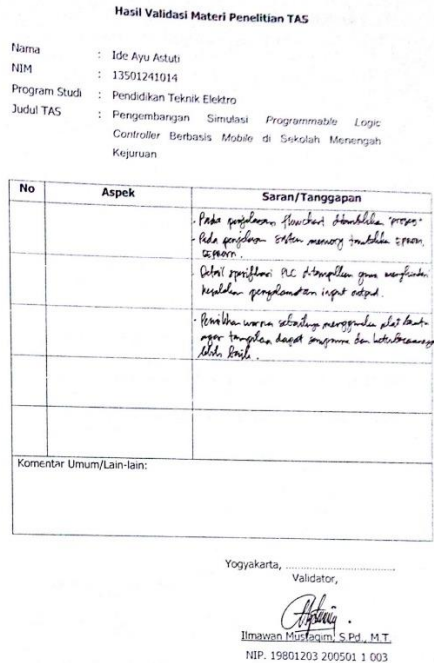 Hasil Validasi Materi Penelitian TAS
Nama : Ide Ayu Astuti
NIM : 13501241014
Program Studi : Pendidikan Teknik Elektro
Judul TAS : Pengembangan Simulasi Programmable Logic
Controller Berbasis Mobile di Sekolah Menengah
Kejuruan
No Aspek Saran/Tanggapan
- Pada penjelasan flowchart ditambahkan "proses"
- Pada penjelasan sistem memory tambahkan EPROM,
EEPROM.
- Detail spesifikasi PLC ditampilkan guna menghindari
kesalahan pengalamatan input output.
- Pemilihan warna sebaiknya menggunakan alat bantu
agar tampilan dapat sempurna dan keterbacaannya
lebih baik.
Komentar Umum/Lain-lain:
Yogyakarta, ..............................
Validator,
Ilmawan Mustaqim, S.Pd., M.T.
NIP. 19801203 200501 1 003